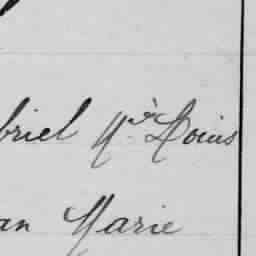 briel Mie Louis
an Marie